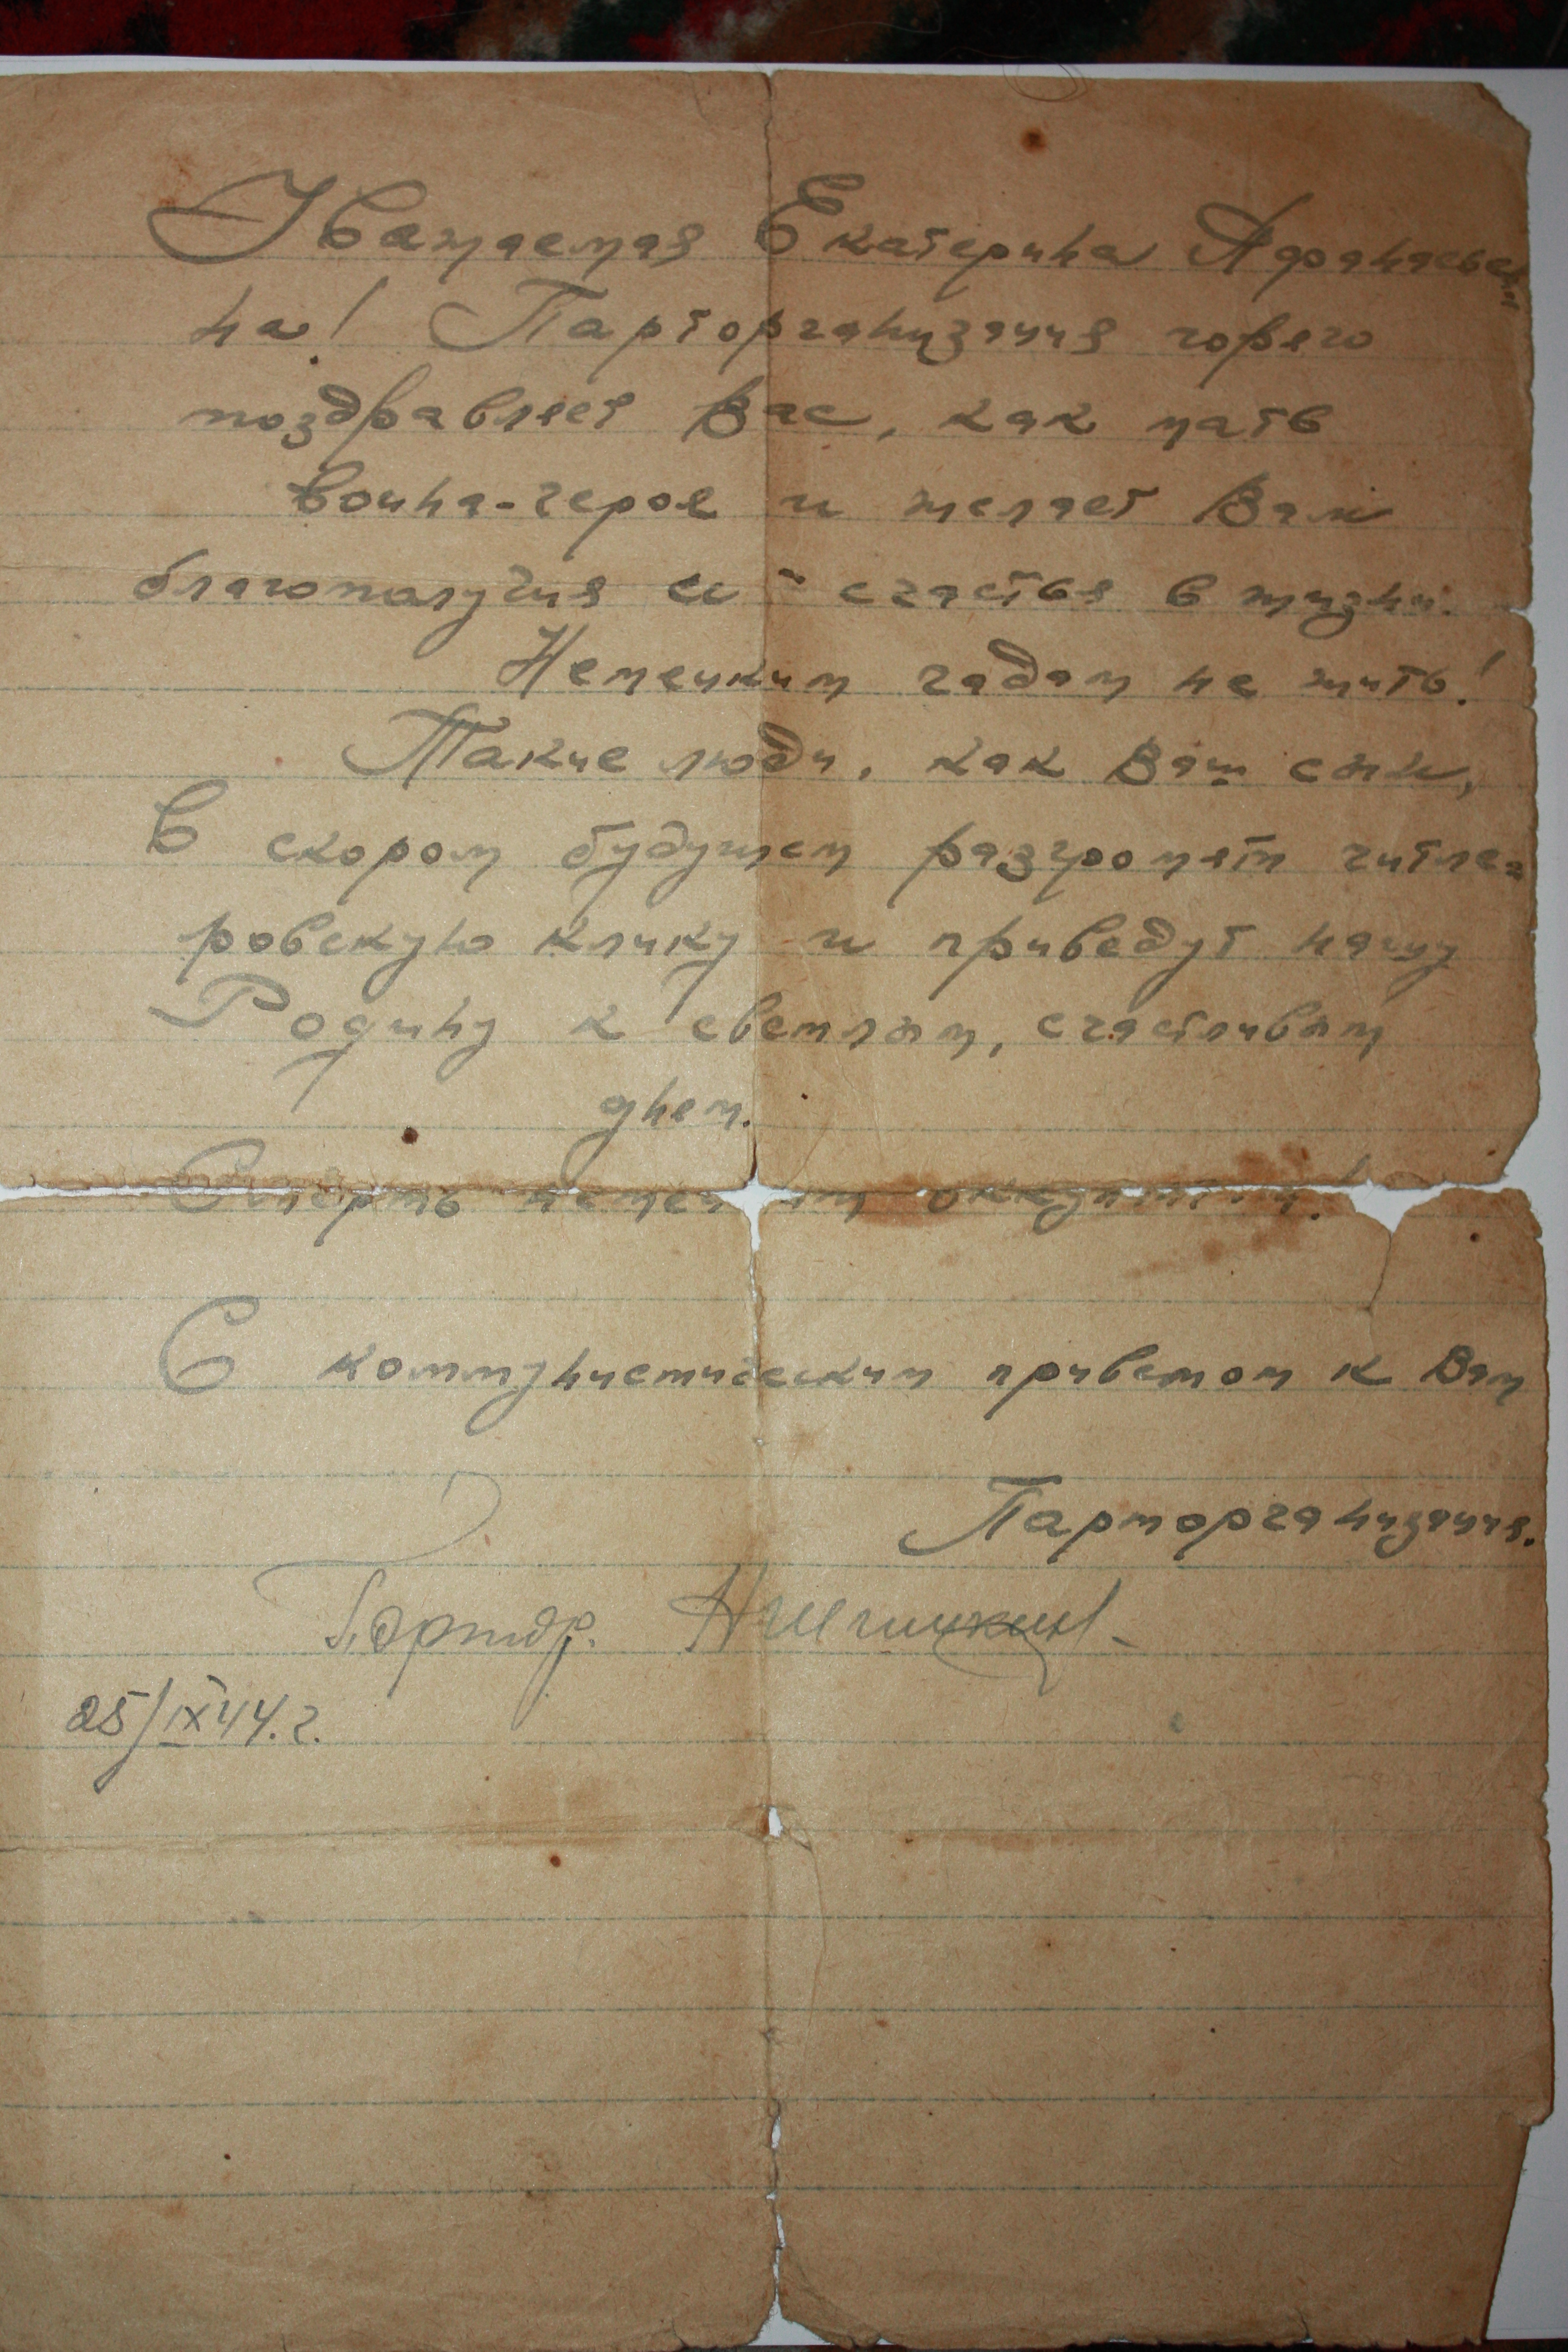 Уважаемая Екатерина Афанасьев-
на! Парторганизация горячо
поздравляет Вас, как мать
воина-героя и желает Вам
благополучия и - счастья в жизни.
Немецким гадам не жить!
Такие люди, как Ваш сын,
в скором будущем разгромят гитле-
ровскую клику и приведут нашу
Родину к светлым, счастливым
днем.
Смерть немецким оккупантам!
С коммунистическим приветом к Вам
Парторганизация.
Парторг.
25/IX 44.г.